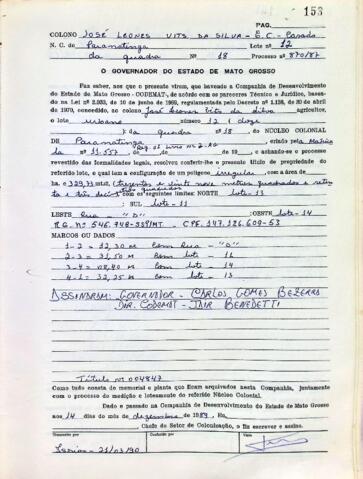 153
PAG.
COLONO JOSÉ LEONES VITS DA SILVA - E.C. - Casado
N. C. de Paranatinga Lote nº 12
da quadra Nº 18 Processo nº 870/87
O GOVERNADOR DO ESTADO DE MATO GROSSO
Faz saber, aos que o presente virem, que havendo a Companhia de Desenvolvimento
do Estado de Mato Grosso - CODEMAT-, de acôrdo com os pareceres Técnico e Jurídico, basea-
do na Lei nº 2.033, de 10 de junho de 1969, regulamentada pelo Decreto nº 1.138, de 20 de abril
de 1970, concedido, ao colono José Leones Vits da Silva agricultor,
o lote urbano número 12 ( doze
) da quadra nº 18 do NÚCLEO COLONIAL
DE Paranatinga criado pela
da 11.557 de 19 , e achando-se o processo
revestido das formalidades legais, resolveu conferir-lhe o presente título de propriedade do
referido lote, o qual tem a configuração de um polígono irregular, com a área de
(trezentos e vinte nove metros quadrados e seten
ta e três com os seguintes limites: NORTE lote-11
: SUL lote-11
LESTE Rua - "D" :OESTE lote-14
CPF. 147.126.609-53
MARCOS OU DADOS
1-2 = 12,30 m com Rua - "D"
2-3 = 31,50 m com lote - 11
3-4 = 08,40 m com lote - 14
4-1 = 32,25 m com lote - 13
ASSINARAM: GOVERNADOR - CARLOS GOMES BEZERRA
DIR. CODEMAT - JAIR BENEDETTI
Título nº 004847
Como tudo consta do memorial e planta que ficam arquivados nesta Companhia, juntamente
com o processo de medição e loteamento do referido Núcleo Colonial.
Dado e passado na Companhia de Desenvolvimento do Estado de Mato Grosso
aos 14 dias do mês de dezembro de 1989. Eu
Chefe do Setor de Colonização, o fiz escrever e assino.
Visto
21/03/90